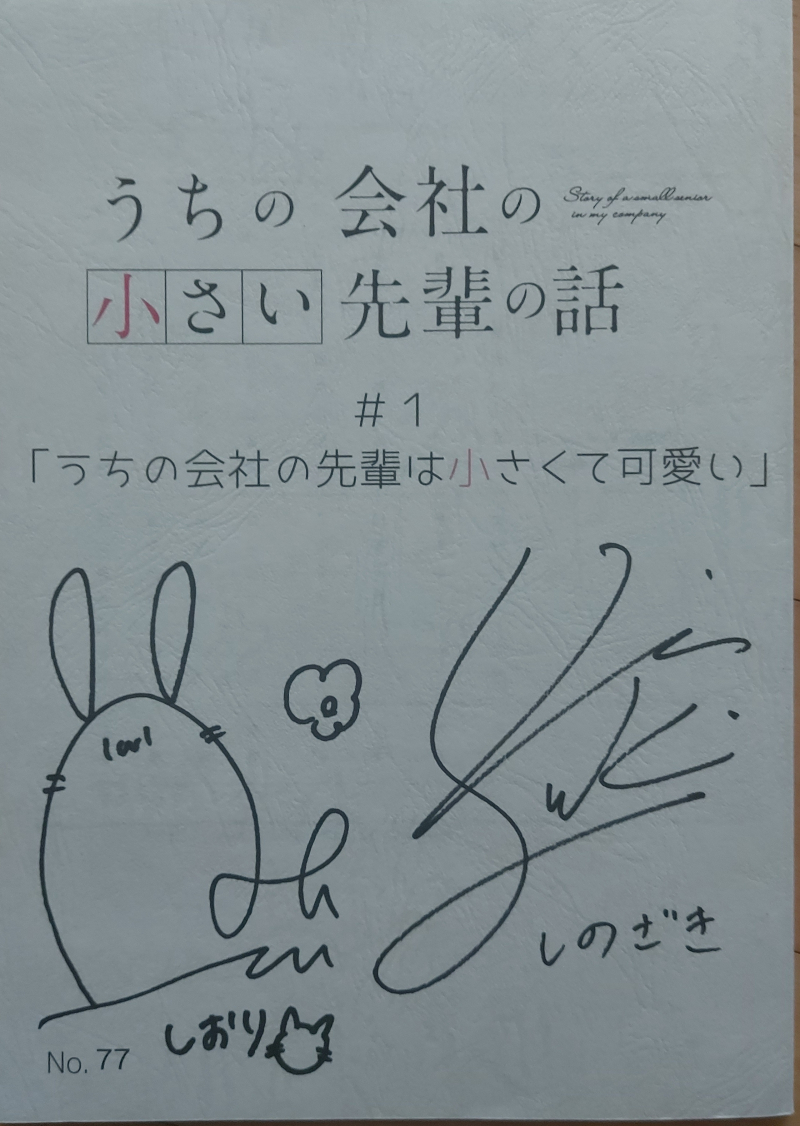 うちの会社の
Story of a small senior
in my company
小さい先輩の話
#1
「うちの会社の先輩は小さくて可愛い」
しのざき
しおり
No. 77